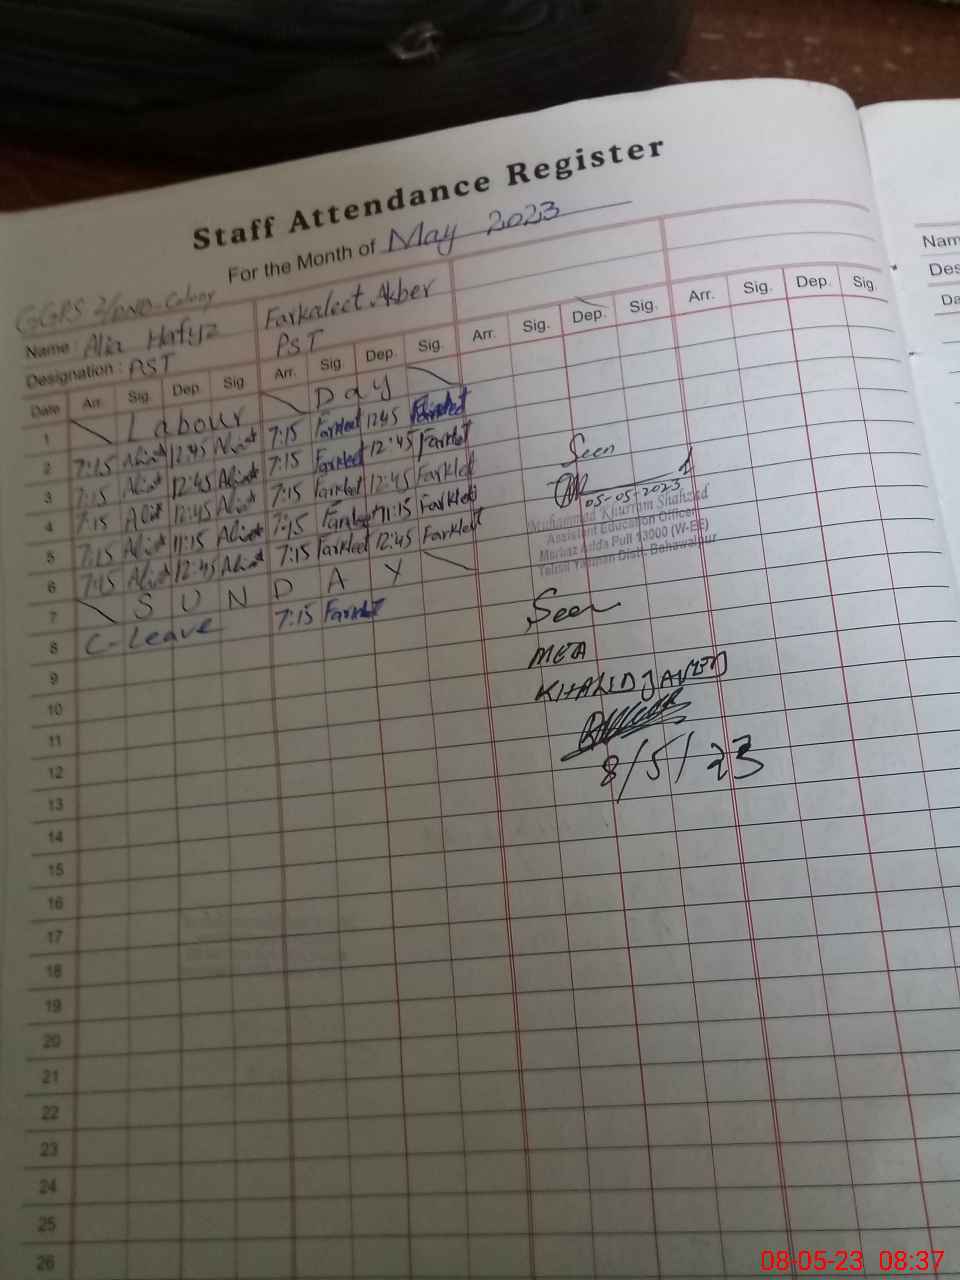 Staff Attendance Register
For the Month of May 2023
Name : Alia Hafyz Farkaleet Akber
Designation : PST PST
Date Arr. Sig. Dep. Sig. Arr. Sig. Dep. Sig. Arr. Sig. Dep. Sig. Arr. Sig. Dep. Sig.
1 Labour Day
2 7:15 12:45 7:15 Farkleet 12:45 Farkleet
3 7:15 12:45 7:15 Farkleet 12:45 Farkleet
4 7:15 12:45 7:15 Farkleet 12:45 Farkleet
5 7:15 11:15 7:15 Farkleet 11:15 Farkleet
6 7:15 12:45 7:15 Farkleet 12:45 Farkleet
7 SUNDAY
8 C-Leave 7:15 Farkleet
9
10
11
12
13
14
15
16
17
18
19
20
21
22
23
24
25
26
Seen
05-05-2023
Muhammad Khurram Shahzad
Assistant Education Officer
Markaz Adda Pull 13000 (W-EE)
Tehsil Yazman Distt. Bahawalpur
Seen
MEA
KHALID JAVED
8/5/23
Nam
Des
Da
08-05-23 08:37